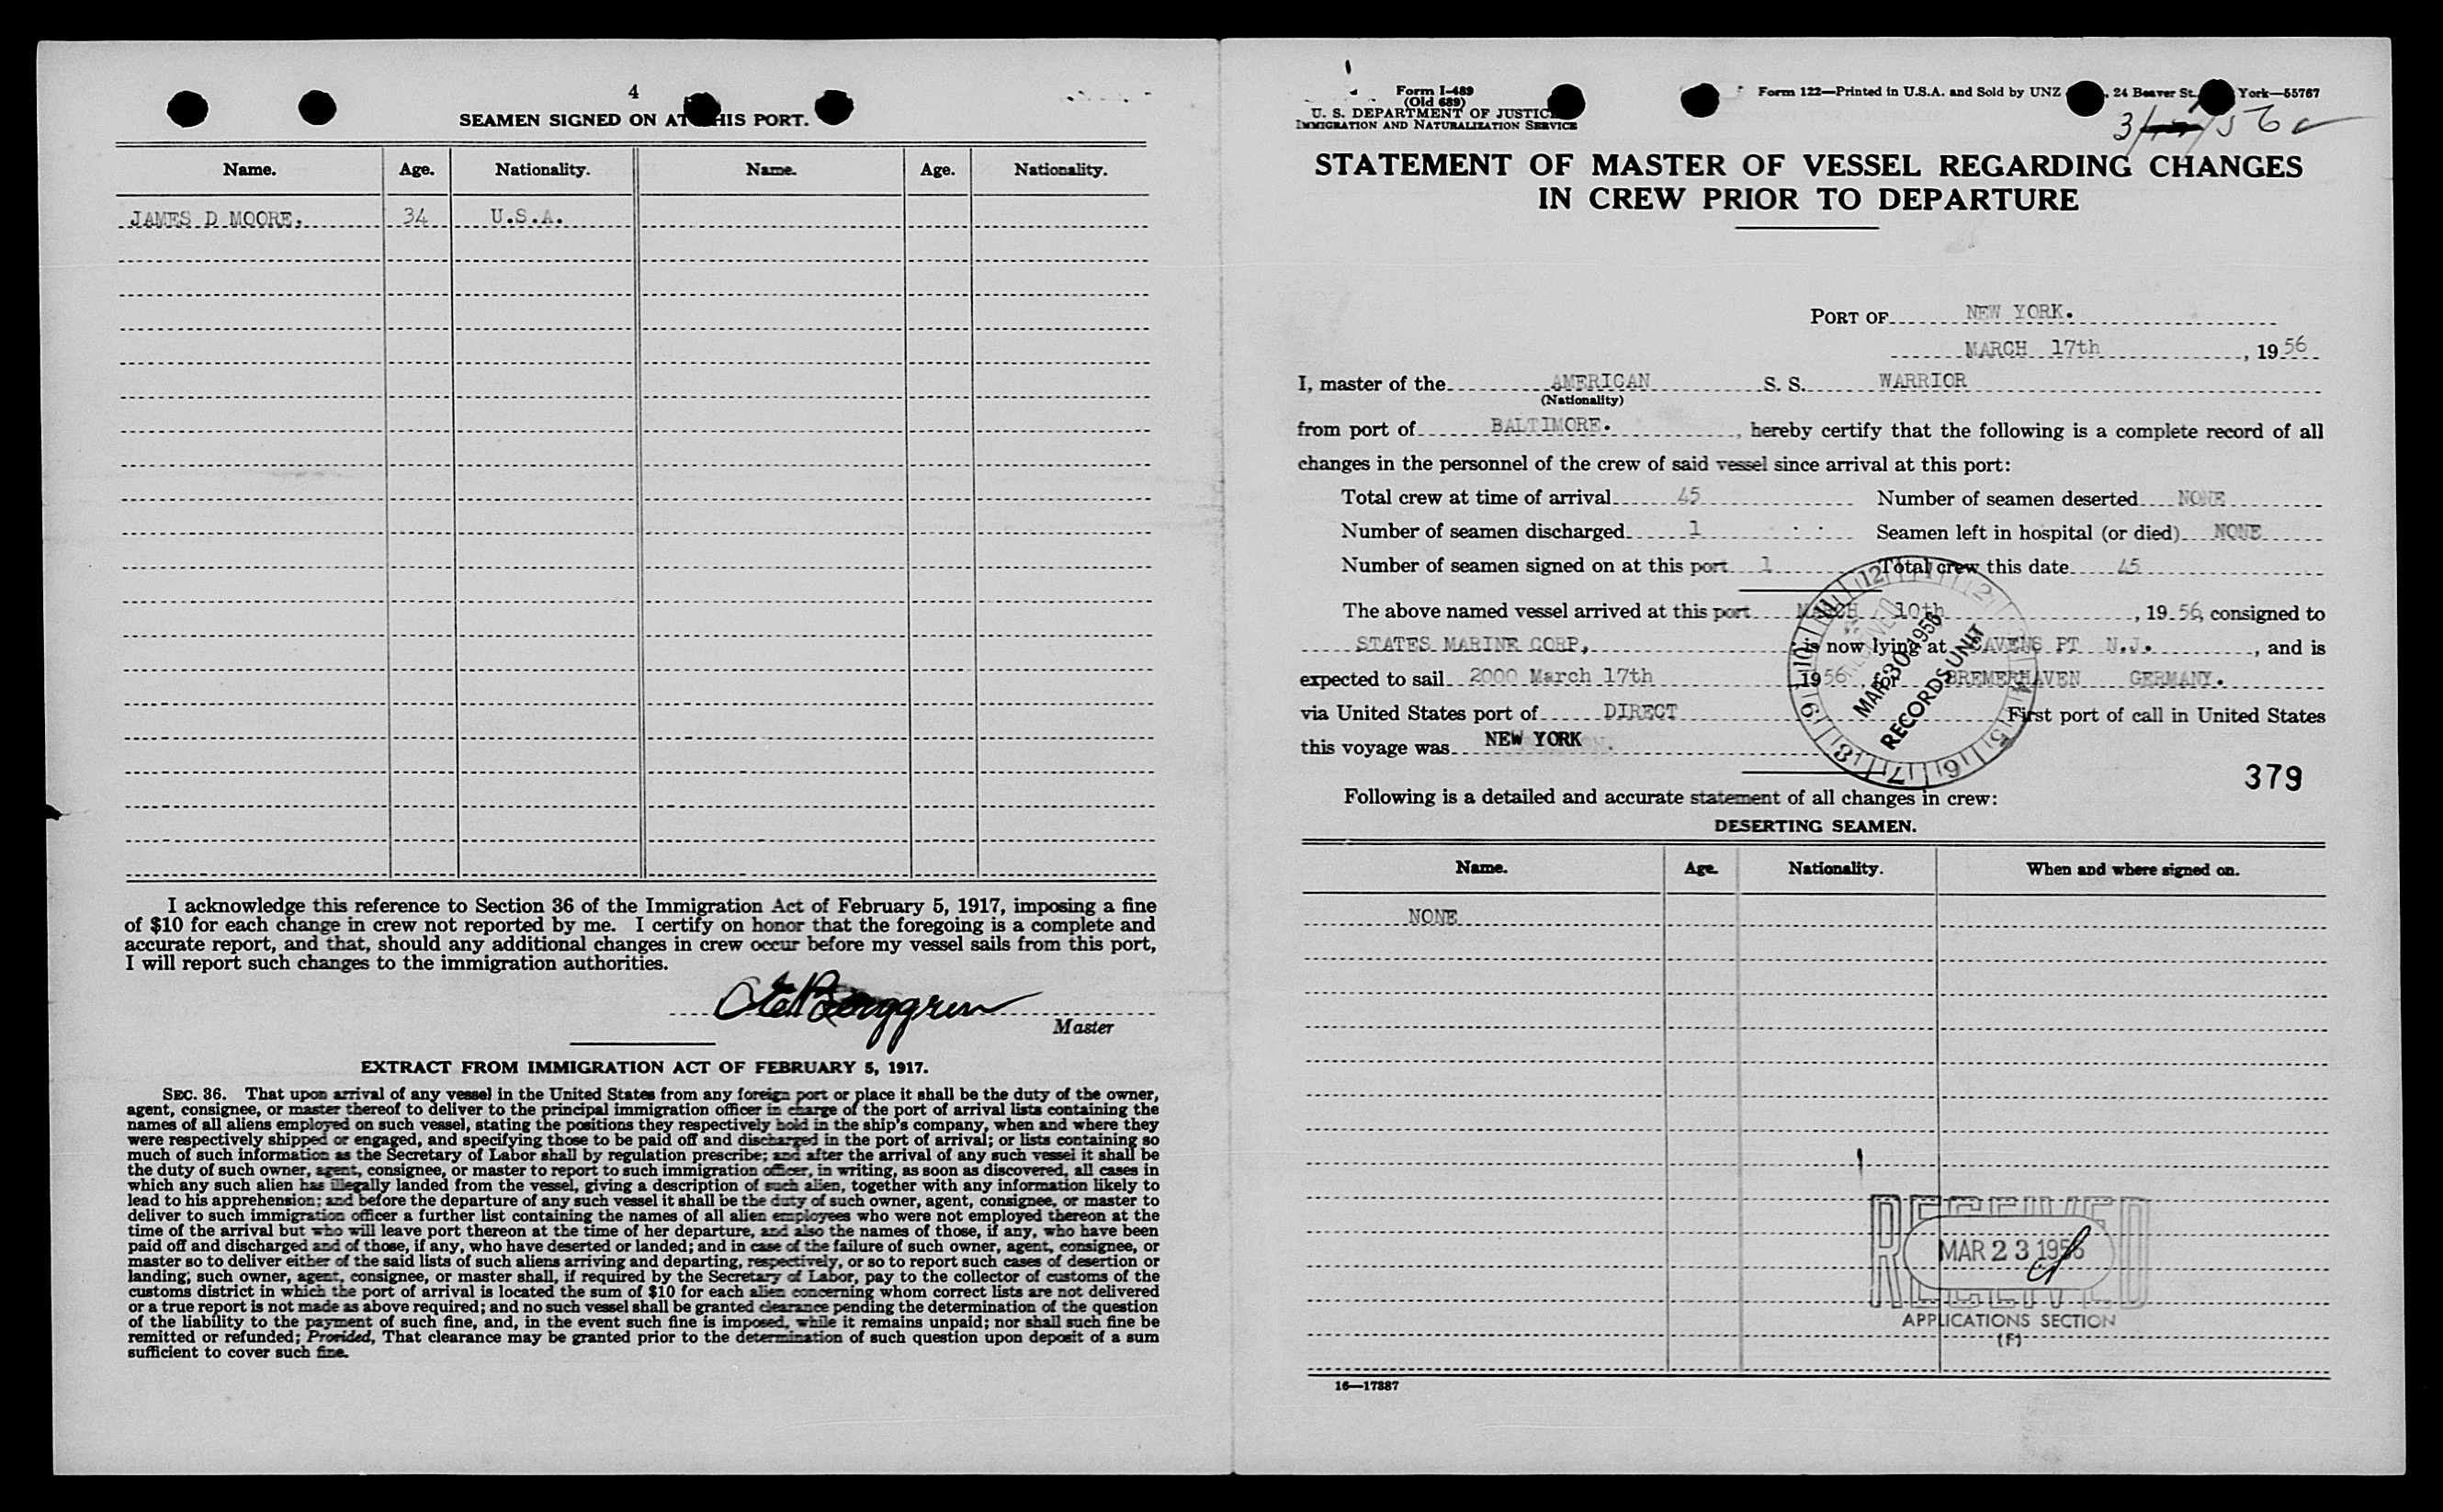 4
SEAMEN SIGNED ON AT THIS PORT.
Name. Age. Nationality. Name. Age. Nationality.
JAMES D MOORE. 34 U.S.A.
I acknowledge this reference to Section 36 of the Immigration Act of February 5, 1917, imposing a fine
of $10 for each change in crew not reported by me. I certify on honor that the foregoing is a complete and
accurate report, and that, should any additional changes in crew occur before my vessel sails from this port,
I will report such changes to the immigration authorities.
Berggren
Master
EXTRACT FROM IMMIGRATION ACT OF FEBRUARY 5, 1917.
SEC. 36. That upon arrival of any vessel in the United States from any foreign port or place it shall be the duty of the owner,
agent, consignee, or master thereof to deliver to the principal immigration officer in charge of the port of arrival lists containing the
names of all aliens employed on such vessel, stating the positions they respectively hold in the ship's company, when and where they
were respectively shipped or engaged, and specifying those to be paid off and discharged in the port of arrival; or lists containing so
much of such information as the Secretary of Labor shall by regulation prescribe; and after the arrival of any such vessel it shall be
the duty of such owner, agent, consignee, or master to report to such immigration officer, in writing, as soon as discovered, all cases in
which any such alien has illegally landed from the vessel, giving a description of such alien, together with any information likely to
lead to his apprehension; and before the departure of any such vessel it shall be the duty of such owner, agent, consignee, or master to
deliver to such immigration officer a further list containing the names of all alien employees who were not employed thereon at the
time of the arrival but who will leave port thereon at the time of her departure, and also the names of those, if any, who have been
paid off and discharged and of those, if any, who have deserted or landed; and in case of the failure of such owner, agent, consignee, or
master so to deliver either of the said lists of such aliens arriving and departing, respectively, or so to report such cases of desertion or
landing; such owner, agent, consignee, or master shall, if required by the Secretary of Labor, pay to the collector of customs of the
customs district in which the port of arrival is located the sum of $10 for each alien concerning whom correct lists are not delivered
or a true report is not made as above required; and no such vessel shall be granted clearance pending the determination of the question
of the liability to the payment of such fine, and, in the event such fine is imposed, while it remains unpaid; nor shall such fine be
remitted or refunded; Provided, That clearance may be granted prior to the determination of such question upon deposit of a sum
sufficient to cover such fine.
Form I-489
(Old 689)
U. S. DEPARTMENT OF JUSTICE
IMMIGRATION AND NATURALIZATION SERVICE
Form 122—Printed in U.S.A. and Sold by UNZ , 24 Beaver St. York—55767
STATEMENT OF MASTER OF VESSEL REGARDING CHANGES
IN CREW PRIOR TO DEPARTURE
PORT OF NEW YORK.
MARCH 17th , 19 56
I, master of the AMERICAN S. S. WARRIOR
(Nationality)
from port of BALTIMORE. , hereby certify that the following is a complete record of all
changes in the personnel of the crew of said vessel since arrival at this port:
Total crew at time of arrival 45 Number of seamen deserted NONE
Number of seamen discharged 1 Seamen left in hospital (or died) NONE
Number of seamen signed on at this port 1 Total crew this date 45
The above named vessel arrived at this port MARCH 10th , 19 56, consigned to
STATES MARINE CORP, is now lying at CAVENS PT N.J. , and is
expected to sail 2000 March 17th 19 56 for BREMERHAVEN GERMANY.
via United States port of DIRECT First port of call in United States
this voyage was NEW YORK
RECEIVED
MAR 30 1956
RECORDS UNIT
379
Following is a detailed and accurate statement of all changes in crew:
DESERTING SEAMEN.
Name. Age. Nationality. When and where signed on.
NONE
RECEIVED
MAR 23 1956
RECEIVED
APPLICATIONS SECTION
(F)
16—17887